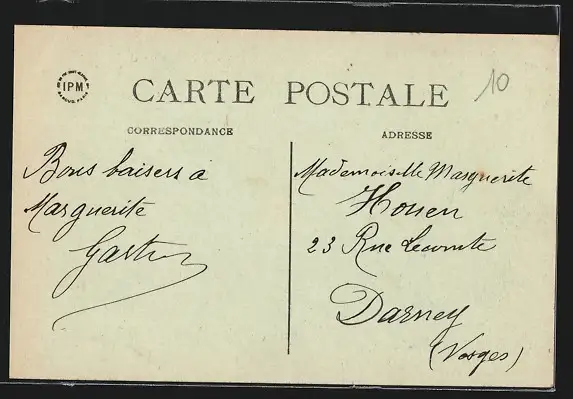 IPM
CARTE POSTALE
10
CORRESPONDANCE
ADRESSE
Bons baisers à
Marguerite
Gaston
Mademoiselle Marguerite
Houen
23 Rue Lecomte
Darney
(Vosges)